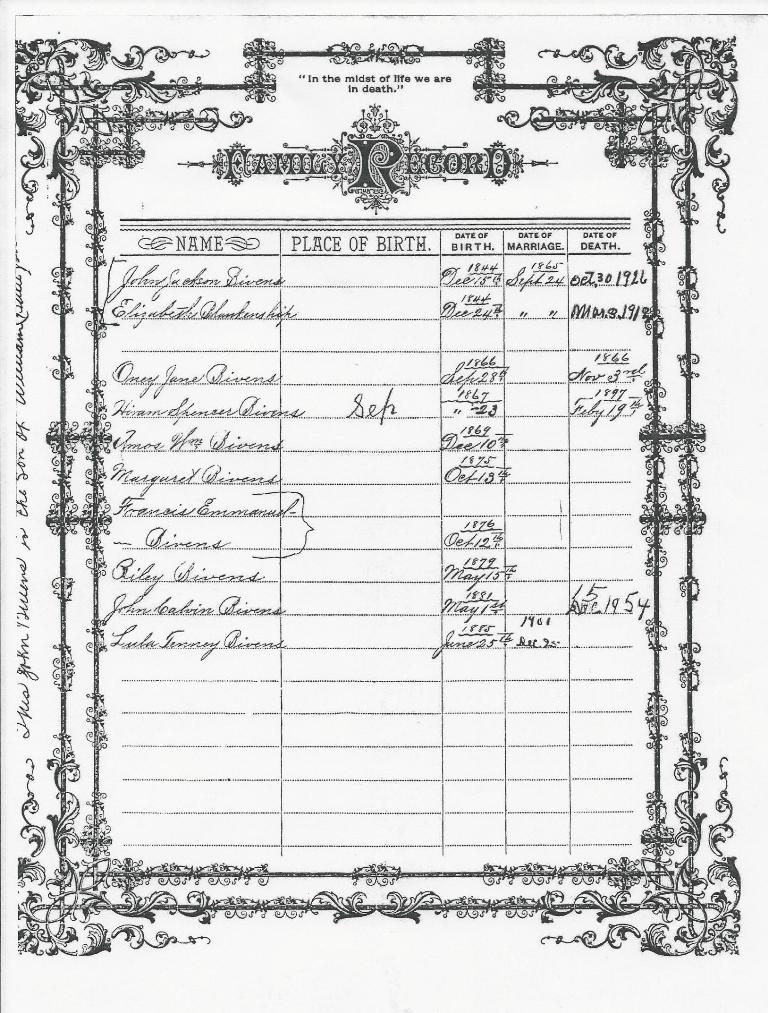 "In the midst of life we are
in death."
FAMILY RECORD
NAME PLACE OF BIRTH. DATE OF BIRTH. DATE OF MARRIAGE. DATE OF DEATH.
John Jackson Bivens Dec 15th 1844 Sept 24 1865 Oct. 30 1926
Elizabeth Blankenship Dec 24th 1844 " " Mar. 8, 1918
Oney Jane Bivens Sep 28th 1866 Nov 3rd 1866
Hiram Spencer Bivens Sep 1867 " 23 Feby 19th 1897
Amos Wm Bivens Dec 10th 1869
Margaret Bivens Oct 13th 1875
Francis Emmanuel
— Bivens Oct 12th 1876
Riley Bivens May 15th 1879
John Calvin Bivens May 1st 1881 15 Dec. 1954
Lula Tenney Bivens June 25th 1885 1901 Dec 25
This John Bivens is the Son of William